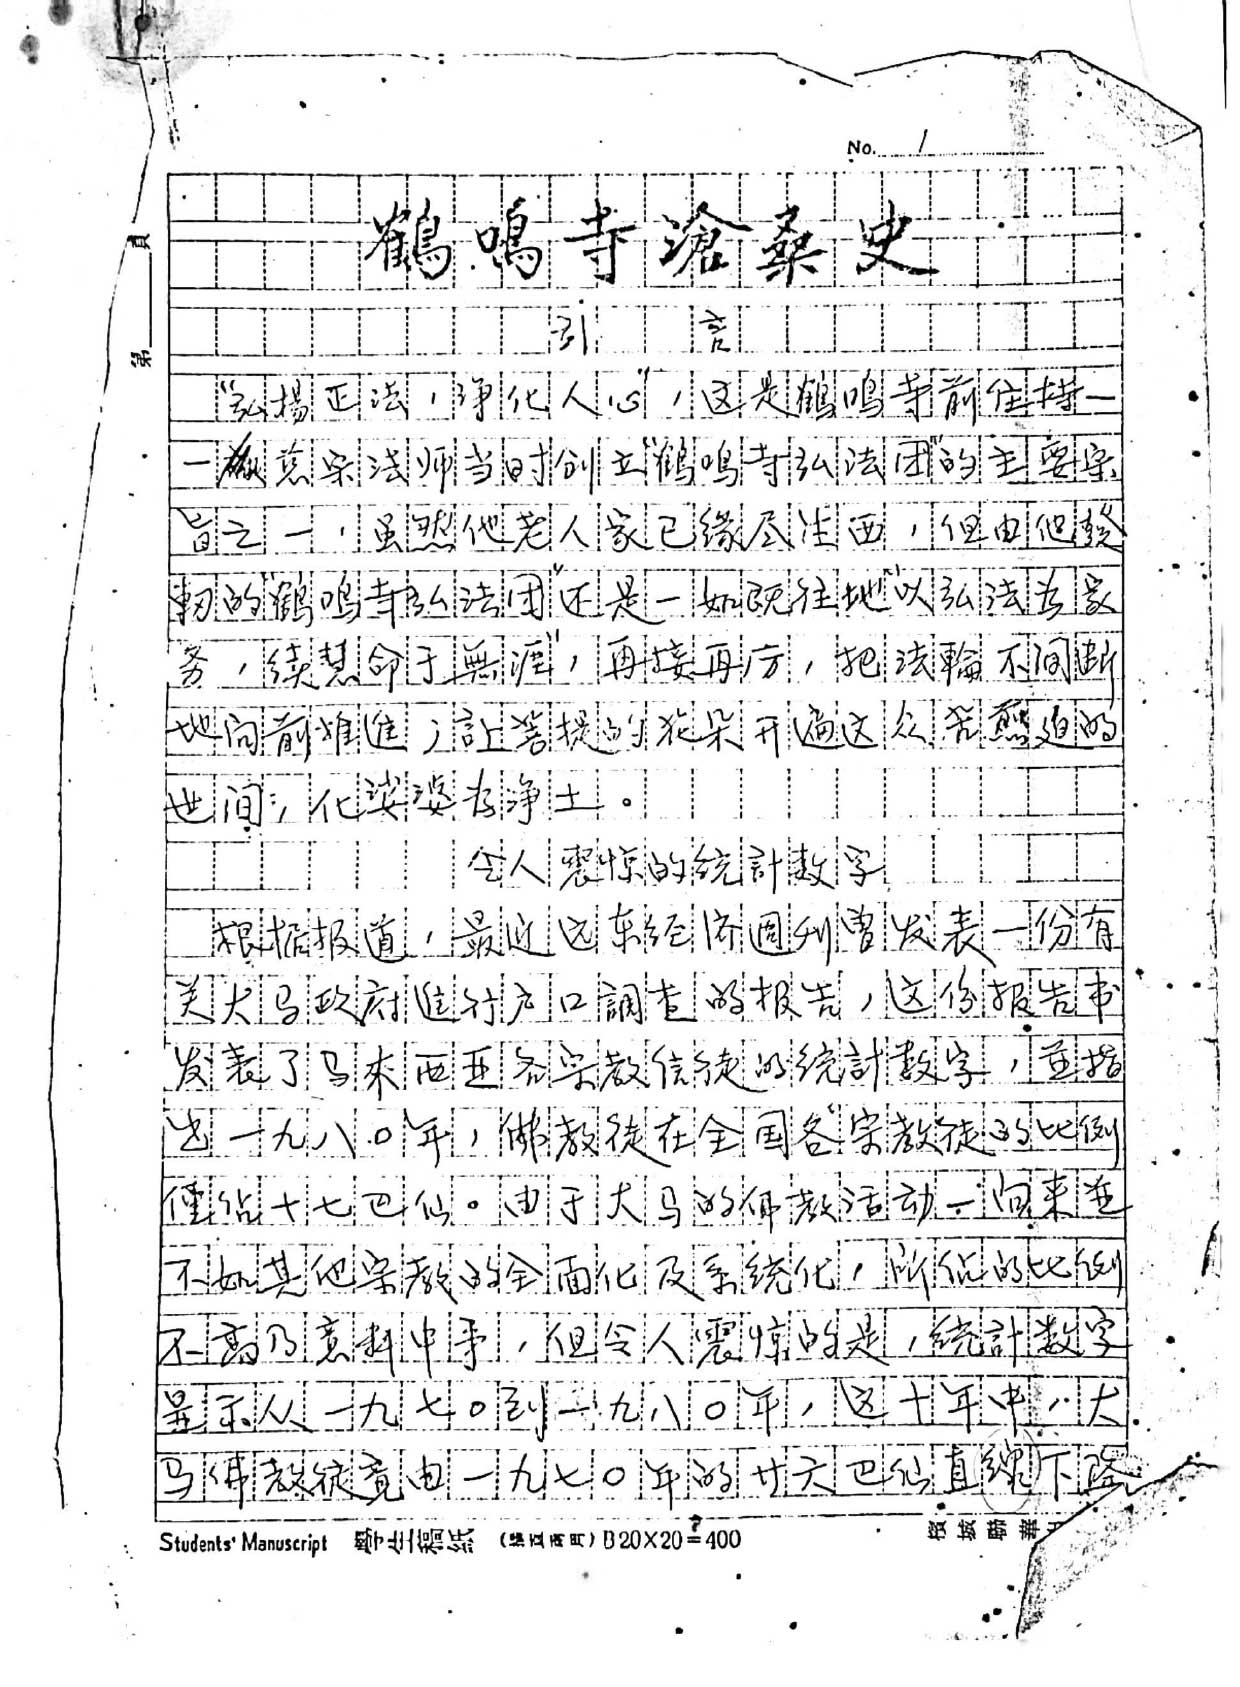 No. 1
第 頁
鶴鳴寺滄桑史
引 言
“弘揚正法，净化人心”，这是鶴鳴寺前住持一
一慈宗法师当时创立“鶴鳴寺弘法团”的主要宗
旨之一，虽然他老人家已缘尽往西，但由他發
軔的“鶴鳴寺弘法团”还是一如既往地“以弘法为家
务，续慧命于無涯”，再接再厉，把法輪不间断
地向前推進，註菩提的花朵开遍这众苦熬迫的
世间，化娑婆为净土。
令人震惊的统計数字
根据报道，最近远东经济週刊曾发表一份有
关大马政府進行户口調查的报告，这份报告书
发表了马來西亚各宗教信徒的统計数字，並指
出一九八〇年，佛教徒在全国各宗教徒的比例
僅佔十七巴仙。由于大马的佛教活动一向来並
不如其他宗教的全面化及系统化，所佔的比例
不高乃意料中事，但令人震惊的是，统計数字
显示从一九七〇到一九八〇年，这十年中，大
马佛教徒竟由一九七〇年的廿六巴仙直線下降
Students' Manuscript 學生稿紙 B20X20=400